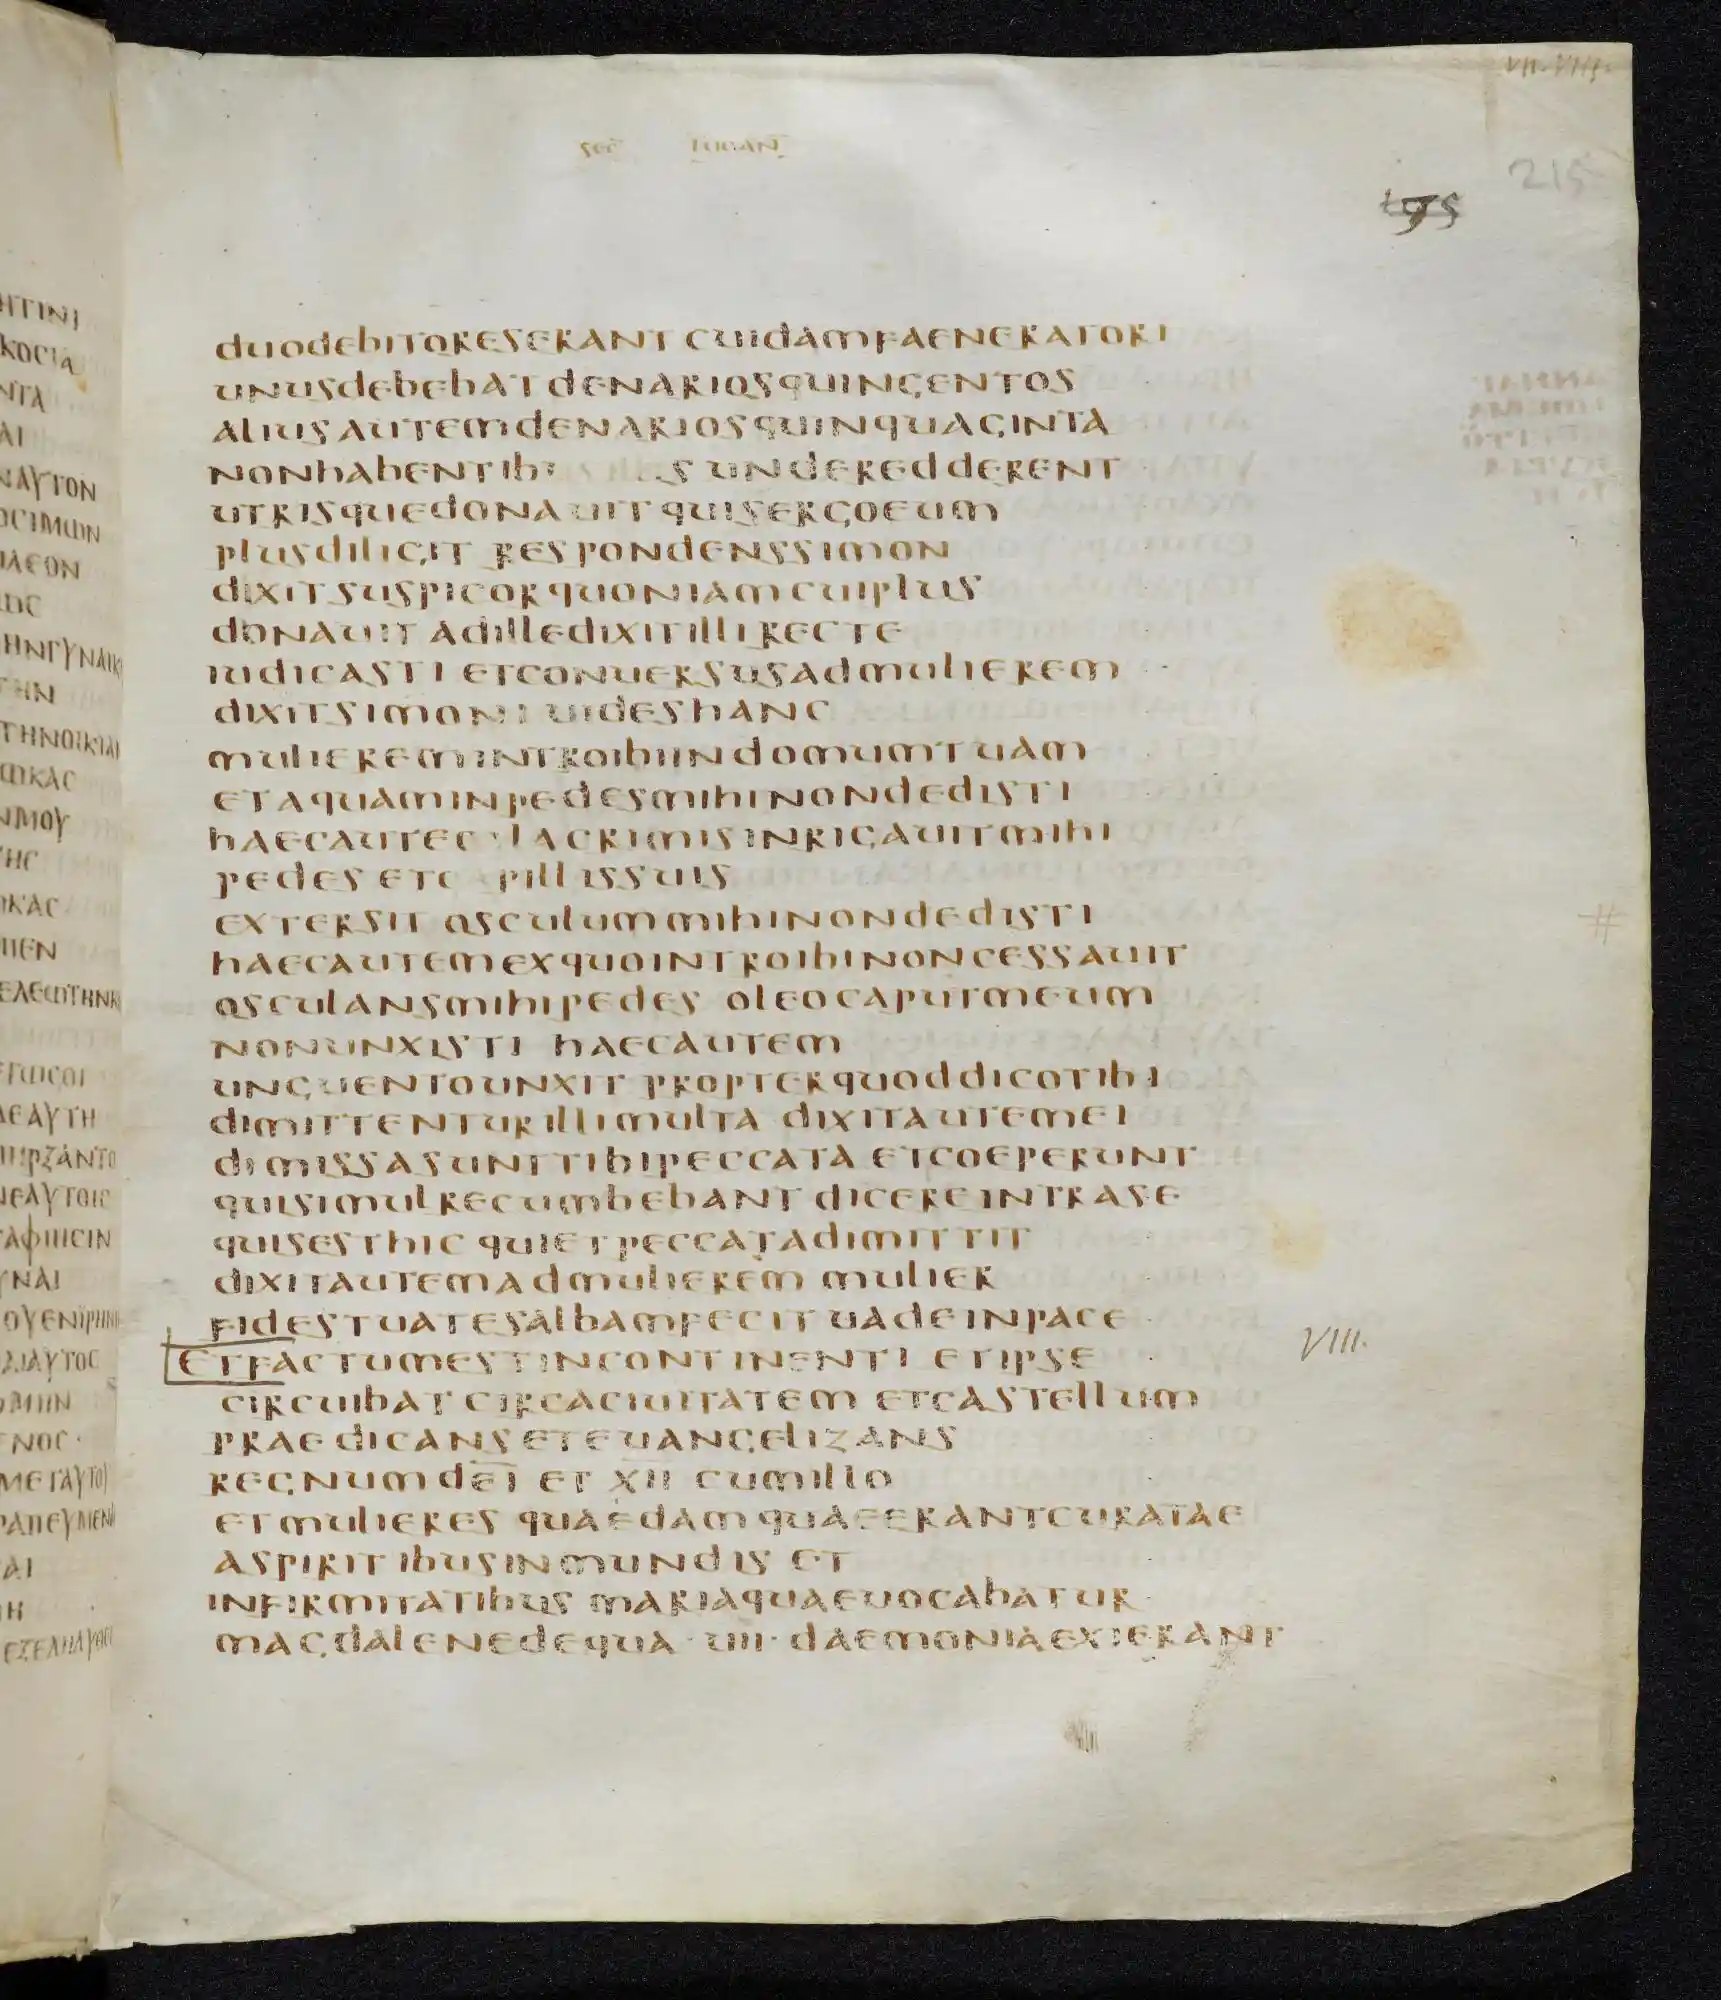 VII-VIII.
sec lucan
215
195
duo debitores erant cuidam faeneratori
unus debebat denarios quingentos
alius autem denarios quinquaginta
non habentib s unde redderent
utrisque donauit quis ergo eum
plus diligit respondens simon
dixit suspicor quoniam cui plus
donauit ad ille dixit illi recte
iudicasti et conuersus ad mulierem
dixit simoni uides hanc
mulierem introibi in domum tuam
et aquam in pedes mihi non dedisti
haec autec lacrimis inrigauit mihi
pedes et c pillis suis
extersit osculum mihi non dedisti
haec autem ex quo introibi non cessauit
osculans mihi pedes oleo caput meum
non unxisti haec autem
unguento unxit propter quod dico tibi
dimittentur illi multa dixit autem ei
dimissa sunt tibi peccata et coeperunt
qui simul recumbebant dicere intra se
quis est hic qui et peccata dimittit
dixit autem ad mulierem mulier
fides tua te salbam fecit uade in pace
Et factum est in continenti et ipse VIII.
circuibat circa ciuitatem et castellum
praedicans et euangelizans
regnum dei et XII cum illo
et mulieres quaedam quae erant curatae
a spiritibus inmundis et
infirmitatibus maria quae uocabatur
magdalene de qua · uii · daemonia exierant